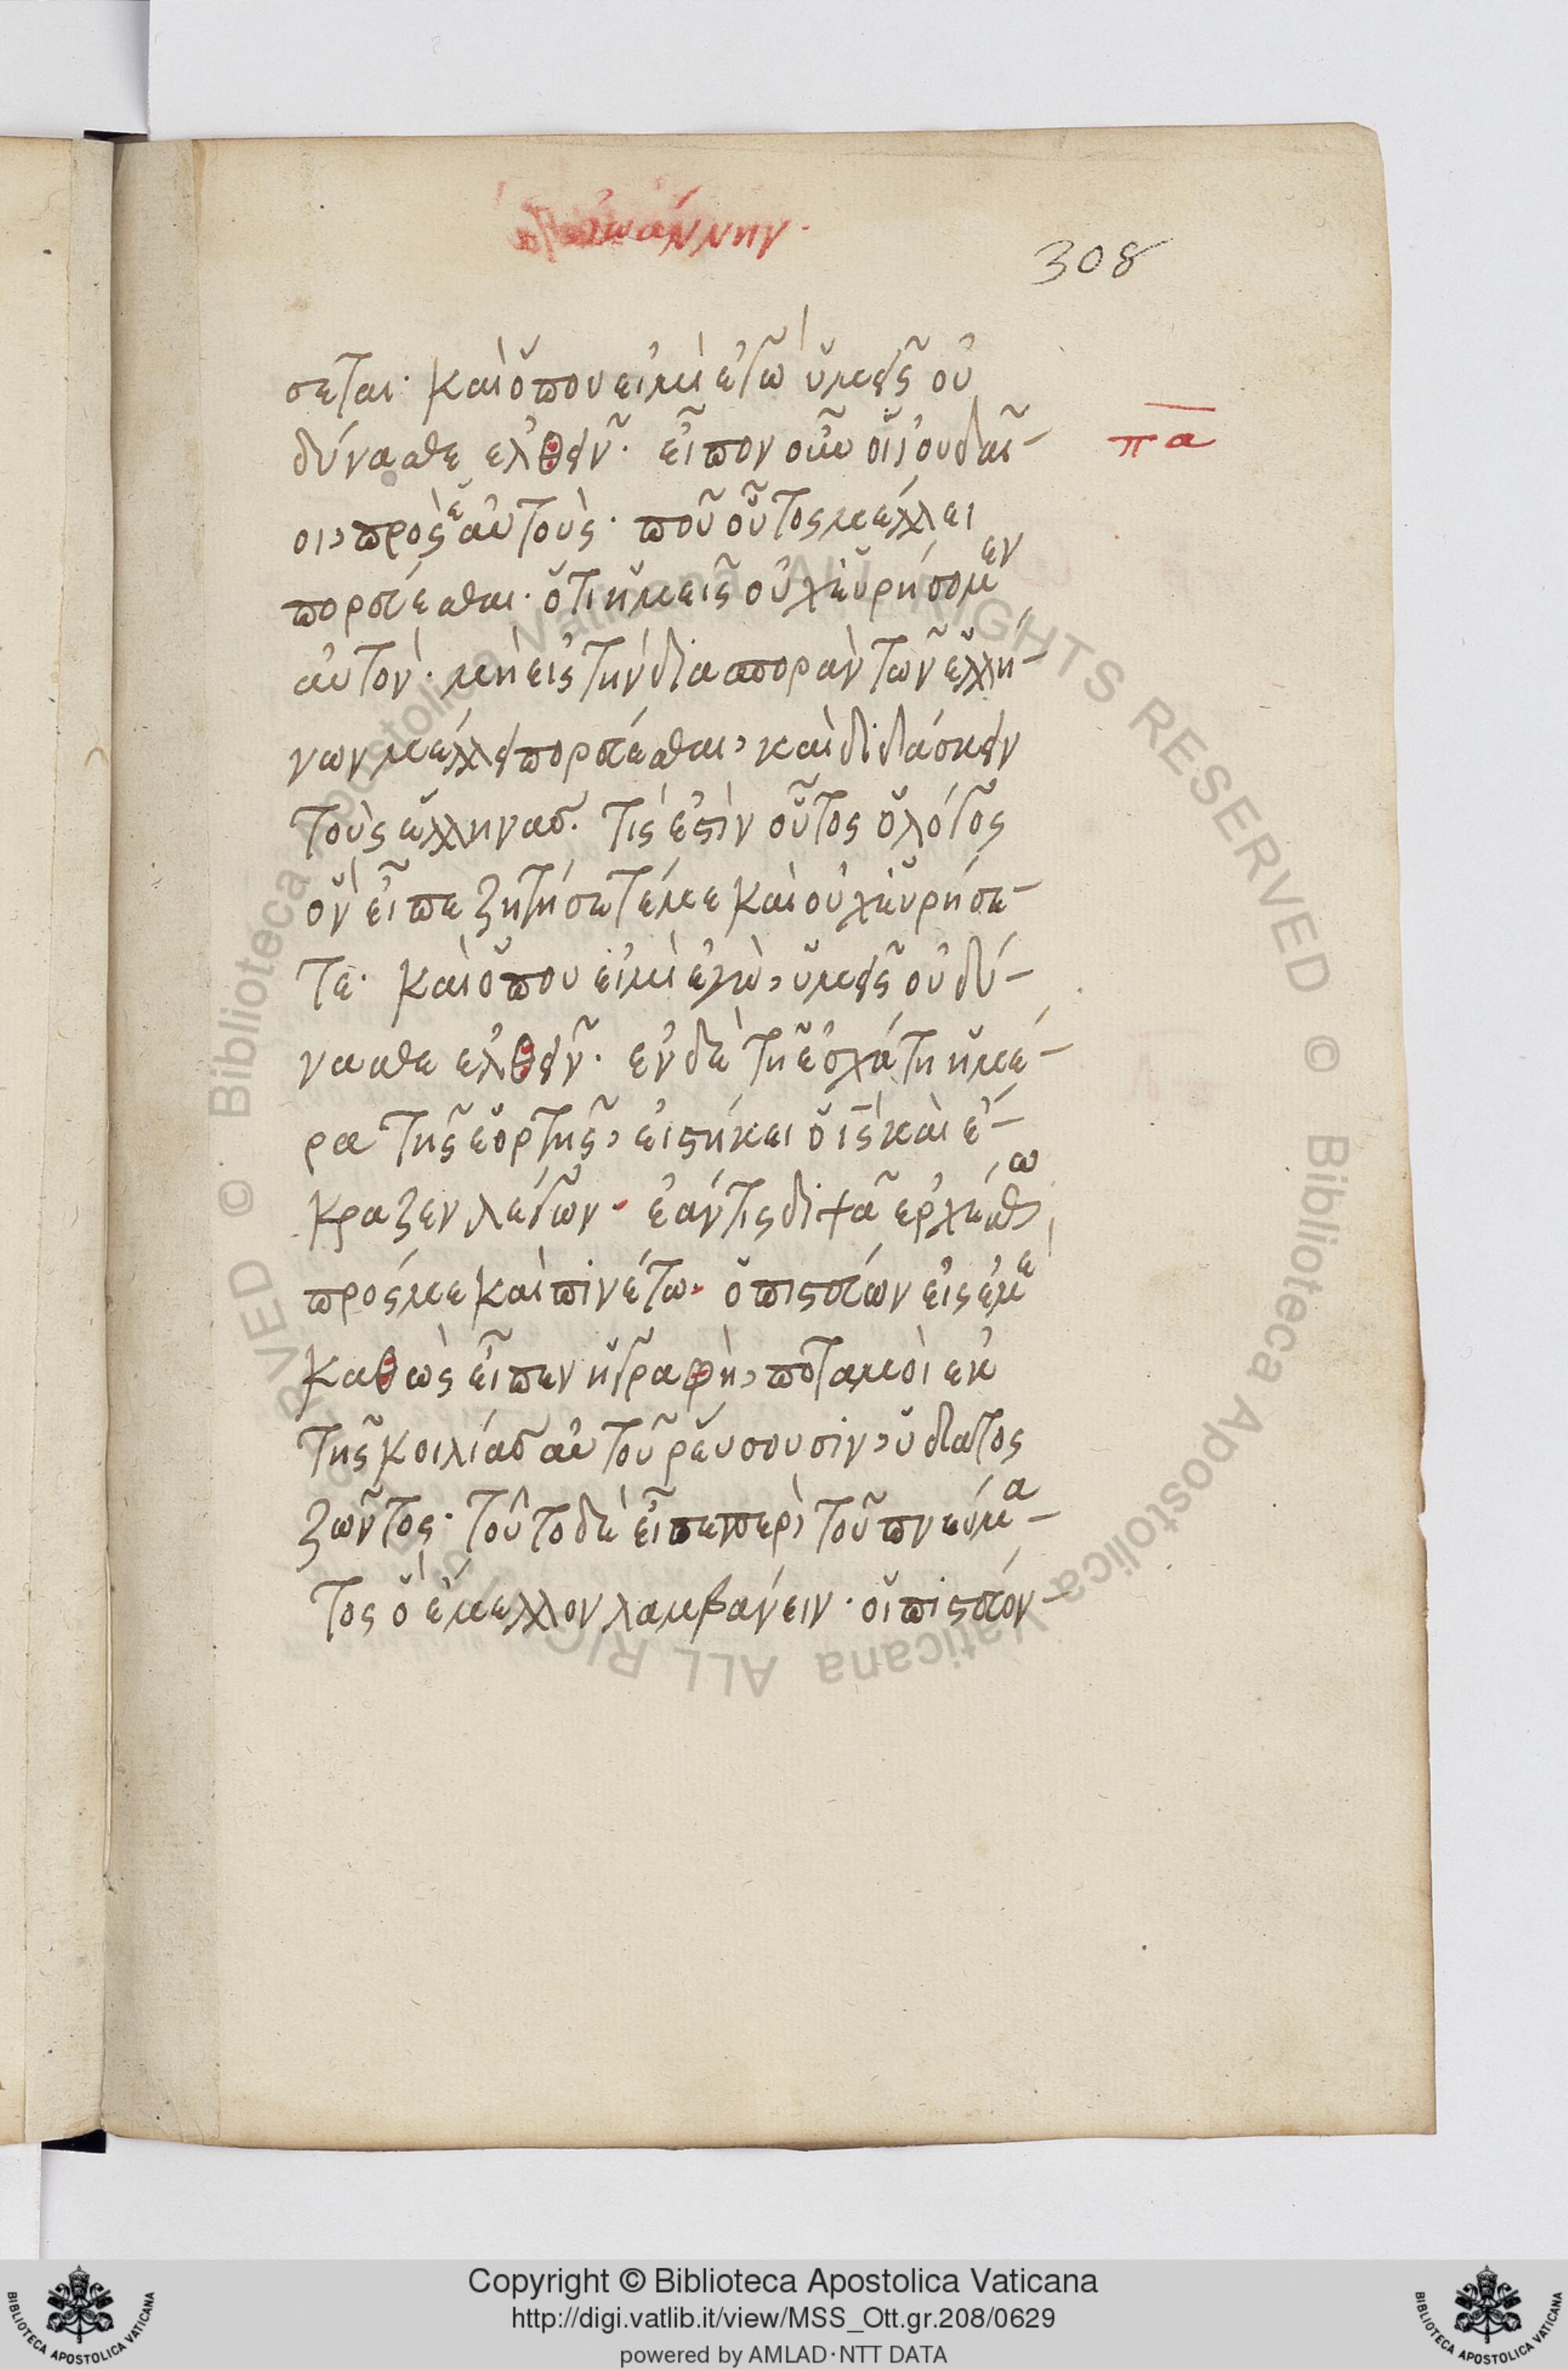 ἰωάννην·
308
σεται· καὶ ὅπου εἰμὶ ἐγὼ ὑμεῖς οὐ
δύνασθε ἐλθεῖν· εἶπον οὖν οἱ ἰουδαῖ-
πα
οι, πρὸς ἑαυτούς· ποῦ οὗτος μέλλει
πορεύεσθαι· ὅτι ἡμεῖς οὐχ εὑρήσομεν
αὐτόν· μὴ εἰς τὴν διασπορὰν τῶν ἑλλή-
νων μέλλει πορεύεσθαι, καὶ διδάσκειν
τοὺς ἕλληνας. τίς ἐστὶν οὗτος ὁ λόγος
ὃν εἶπε ζητήσετέ με καὶ οὐχ εὑρήσε-
τε· καὶ ὅπου εἰμὶ ἐγὼ, ὑμεῖς οὐ δύ-
νασθε ἐλθεῖν· ἐν δὲ τῇ ἐσχάτῃ ἡμέ-
ρα τῆς ἑορτῆς, εἱστήκει ὁ ις καὶ ἔ-
κραζεν λέγων· ἐάν τις διψᾶ ἐρχέσθω
πρός με καὶ πινέτω· ὁ πιστεύων εἰς ἐμὲ
καθὼς εἶπεν ἡ γραφὴ, ποταμοὶ ἐκ
τῆς κοιλίας αὐτοῦ ῥεύσουσιν, ὕδατος
ζῶντος· τοῦτο δὲ εἶπε περὶ τοῦ πνεύμα-
τος ὃ ἔμελλον λαμβάνειν· οἱ πιστεύον-
Copyright © Biblioteca Apostolica Vaticana
http://digi.vatlib.it/view/MSS_Ott.gr.208/0629
powered by AMLAD·NTT DATA